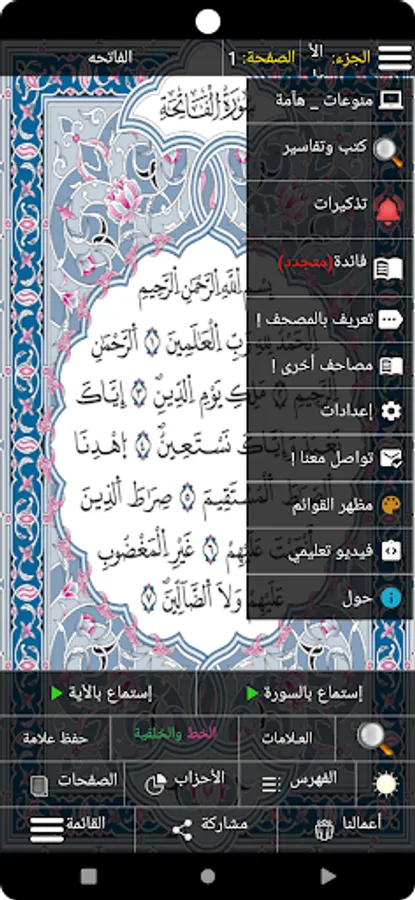 الجزء: الأ الصفحة: 1 الفاتحه
سُورَةُ الْفَاتِحَةِ
منوعات _ هآمة
كتب وتفاسير
تذكيرات
فائدة(متجدد)
تعريف بالمصحف !
مصاحف أخرى !
إعدادات
تواصل معنا !
مظهر القوائم
فيديو تعليمي
حول
بِسْمِ اللَّهِ الرَّحْمَٰنِ الرَّحِيمِ
الْحَمْدُ لِلَّهِ رَبِّ الْعَالَمِينَ ١ الرَّحْمَٰنِ
الرَّحِيمِ ٢ مَلِكِ يَوْمِ الدِّينِ ٣ إِيَّاكَ
نَعْبُدُ وَإِيَّاكَ نَسْتَعِينُ ٤ اهْدِنَا
الصِّرَاطَ الْمُسْتَقِيمَ ٥ صِرَاطَ الَّذِينَ
أَنْعَمْتَ عَلَيْهِمْ ٦ غَيْرِ الْمَغْضُوبِ
عَلَيْهِمْ وَلَا الضَّالِّينَ ٧
إستماع بالسورة إستماع بالأية
العلامات الخط والخلفية حفظ علامة
الفهرس الأحزاب الصفحات
أعمالنا مشاركة القائمة